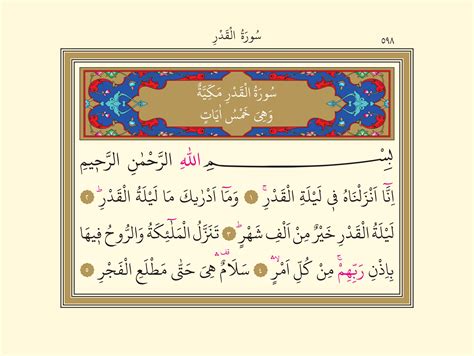 سُورَةُ الْقَدْرِ
٥٩٨
سُورَةُ الْقَدْرِ مَكِّيَّةٌ
وَهِيَ خَمْسُ اٰيَاتٍ
بِسْمِ اللّٰهِ الرَّحْمٰنِ الرَّحِيمِ
اِنَّٓا اَنْزَلْنَاهُ فٖى لَيْلَةِ الْقَدْرِۚ ﴿١﴾ وَمَٓا اَدْرٰيكَ مَا لَيْلَةُ الْقَدْرِۜ ﴿٢﴾
لَيْلَةُ الْقَدْرِ خَيْرٌ مِنْ اَلْفِ شَهْرٍۜ ﴿٣﴾ تَنَزَّلُ الْمَلٰٓئِكَةُ وَالرُّوحُ فٖيهَا
بِاِذْنِ رَبِّهِمْۚ مِنْ كُلِّ اَمْرٍۙۛ ﴿٤﴾ سَلَامٌ۠ۛ هِىَ حَتّٰى مَطْلَعِ الْفَجْرِ ﴿٥﴾